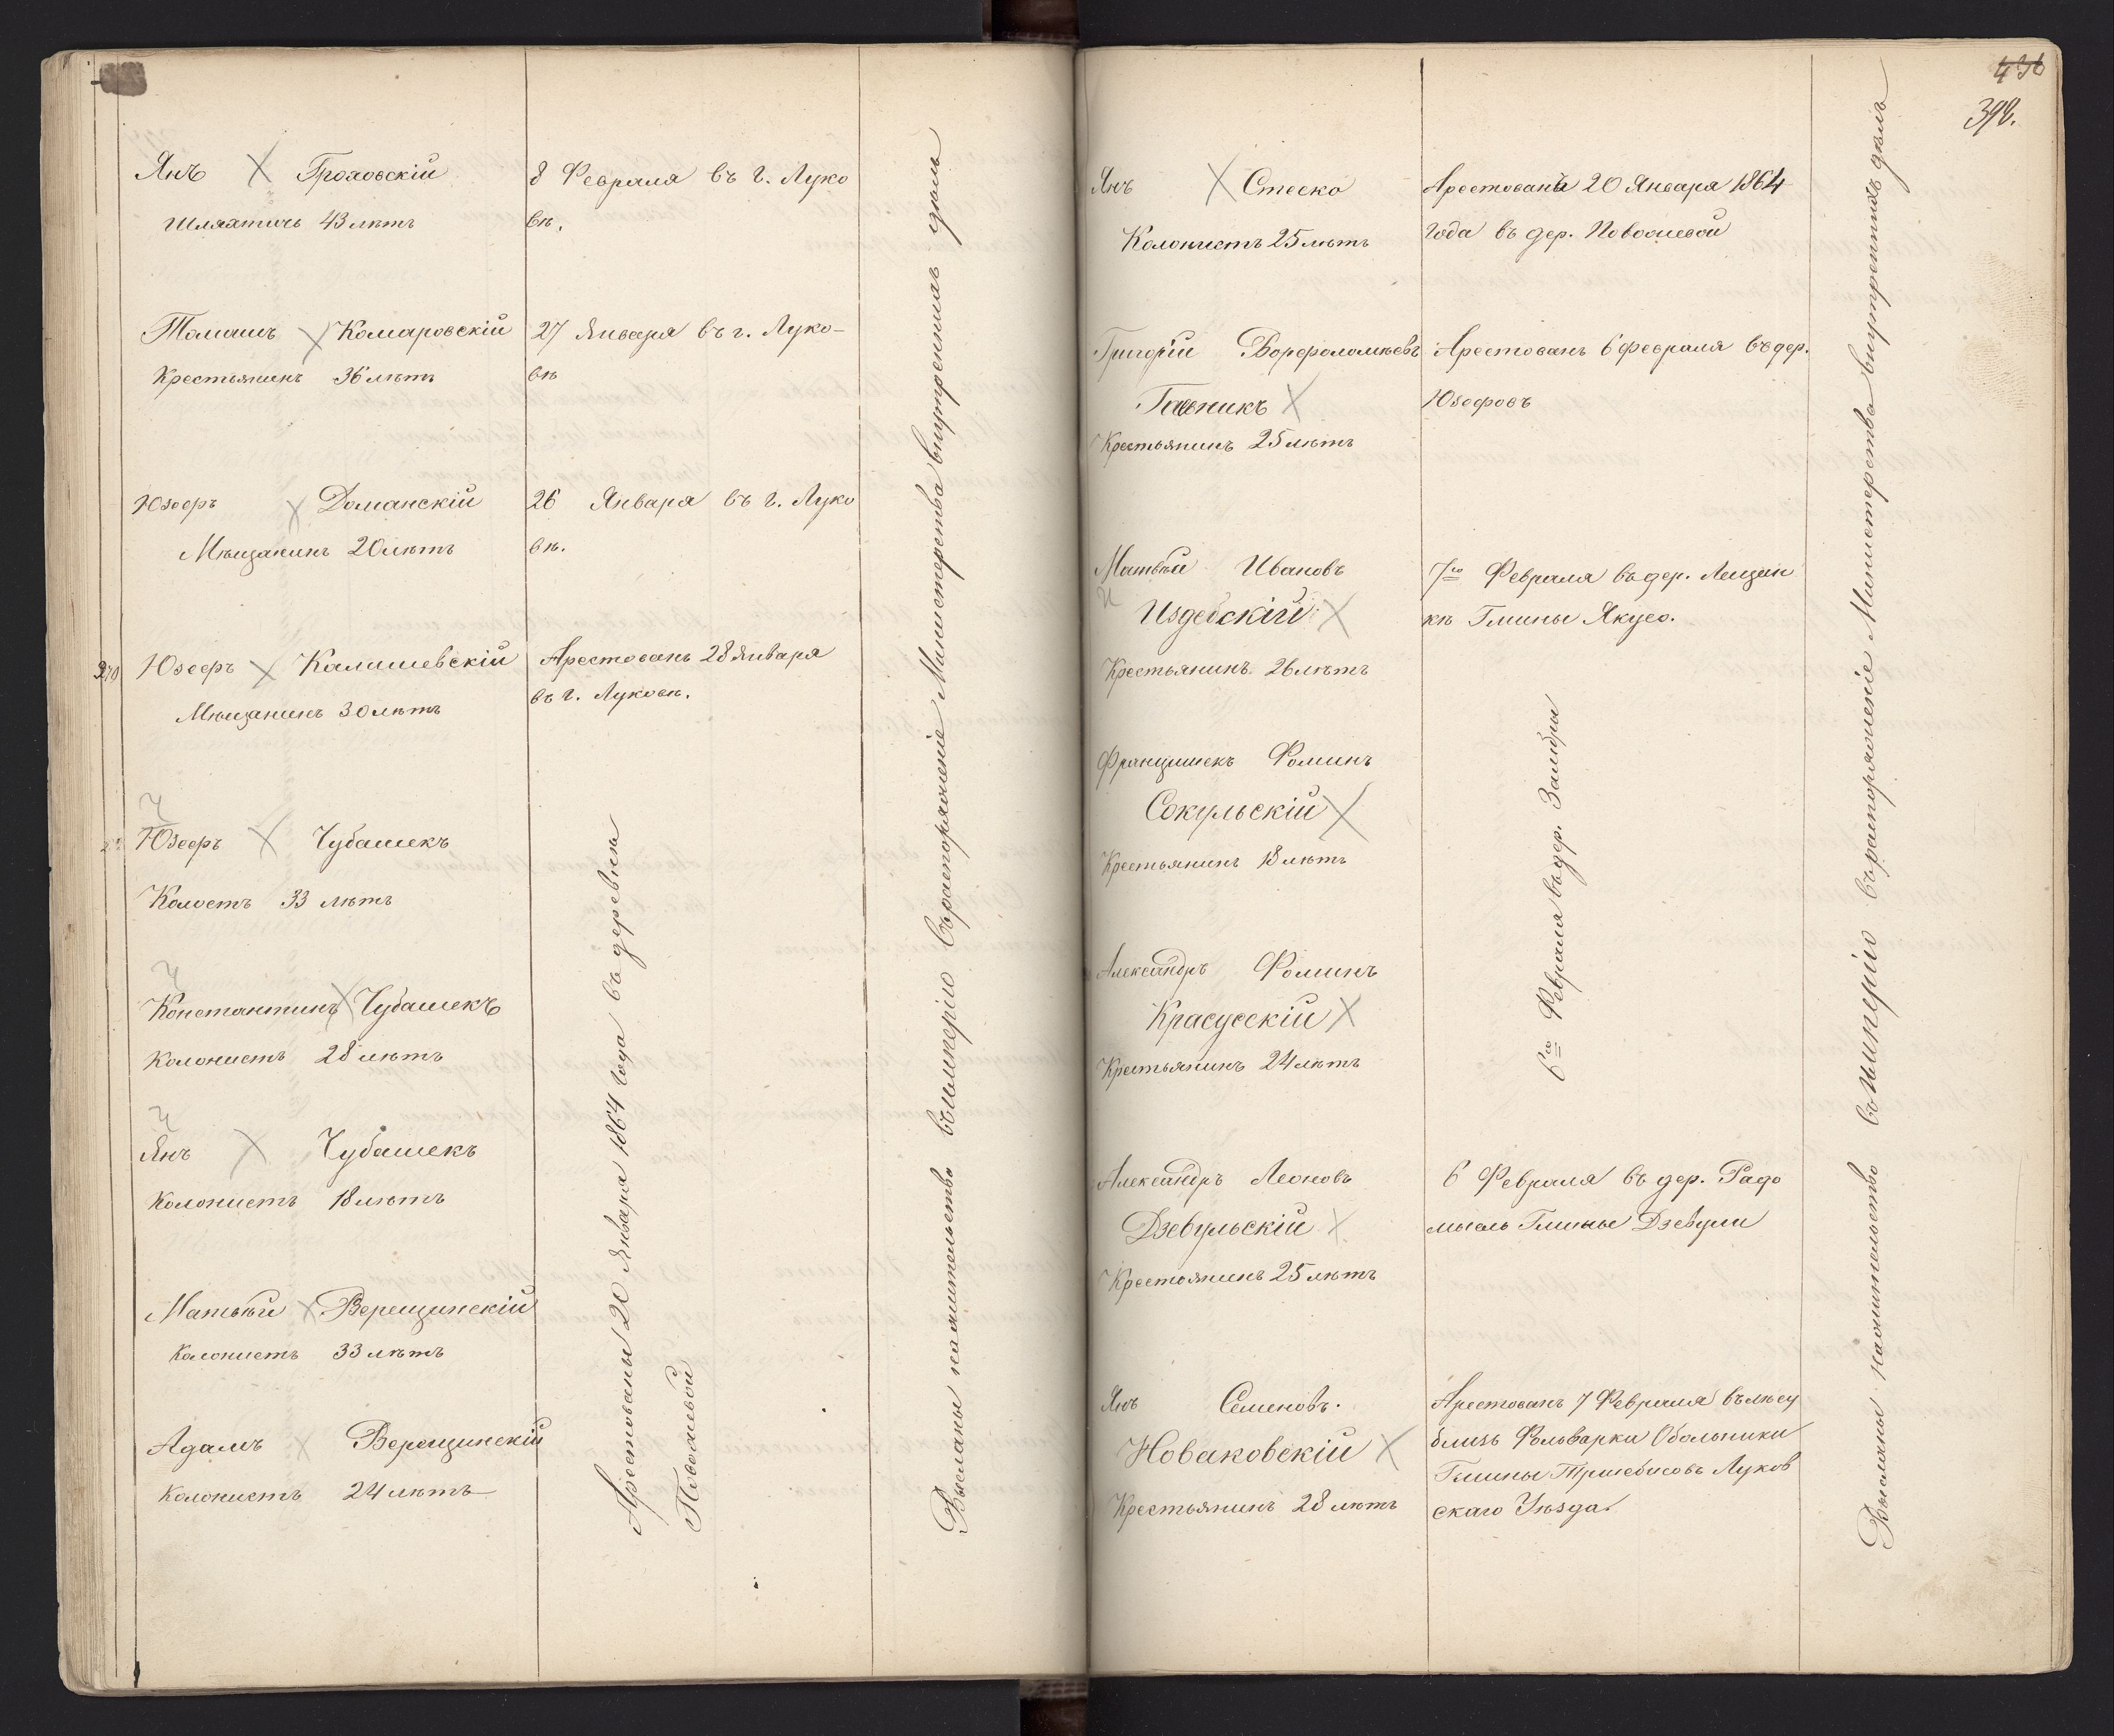 Янъ Гроховскій
Шляхтичъ 43 лѣтъ
8 Февраля въ г. Луко
вѣ.
Томашъ Комаровскій
Крестьянинъ 36 лѣтъ
27 Января въ г. Луко-
вѣ
Юзефъ Доманскій
Мѣщанинъ 20 лѣтъ
26 Января въ г. Луко
вѣ.
270
Юзефъ Калишевскій
Мѣщанинъ 30 лѣтъ
Арестованъ 28 Января
въ г. Луковѣ.
Ч
Юзефъ Чубашекъ
Колостъ 33 лѣтъ
Ч
Константинъ Чубашекъ
Колонистъ 28 лѣтъ
Ч
Янъ Чубашекъ
Колонистъ 18 лѣтъ
Матвѣй Верещинскій
Колонистъ 33 лѣтъ
Адамъ Верещинскій
Колонистъ 24 лѣтъ
Арестованы 20 Января 1864 года въ деревнѣ
Высланы на жительство въ имперію въ распоряженіе Министерства внутреннихъ дѣлъ
436
392.
Янъ Стеско
Колонистъ 25 лѣтъ
Арестованъ 20 Января 1864
года въ дер.
Григорій Ворфоломѣевъ
Крестьянинъ 25 лѣтъ
Арестованъ 6 февраля въ дер.
Юзефовъ
Матвѣй Ивановъ
И
Издебскій
Крестьянинъ 26 лѣтъ
7го Февраля въ дер. Лещан
кѣ Гмины Якусо.
Францишекъ Фоминъ
Сокульскій
Крестьянинъ 18 лѣтъ
Александръ Фоминъ
Красусскій
Крестьянинъ 24 лѣтъ
6го Февраля въ дер. Зали́вы
Александръ Леоновъ
Дзевульскій
Крестьянинъ 25 лѣтъ
6 Февраля въ дер. Радо
мысль Гмины Дзевули
Янъ Семеновъ.
Новаковскій
Крестьянинъ 28 лѣтъ
Арестованъ 7 Февраля въ лѣсу
близь Фольварка Обельники
Гмины Тршебисовъ Луков
скаго Уѣзда.
Высланы на жительство въ имперію въ распоряженіе Министерства внутреннихъ дѣлъ